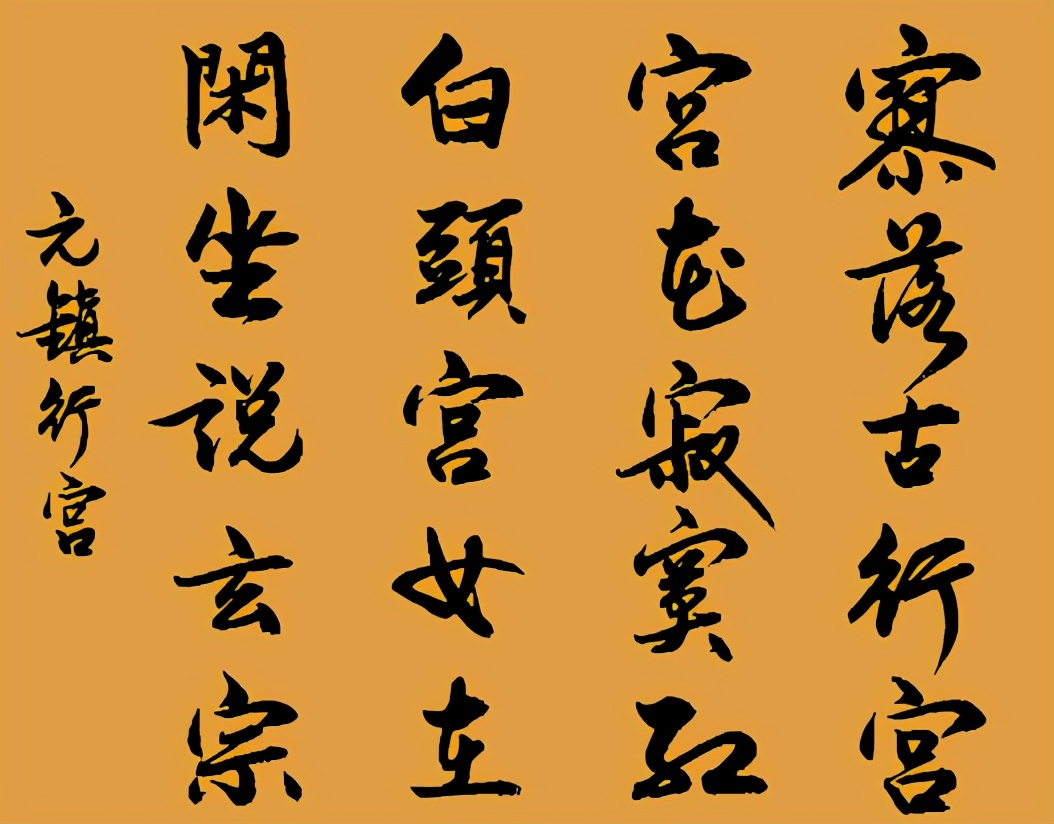 寮落古行宮
宮花寂寞紅
白頭宮女在
閑坐説玄宗
元鎮行宮